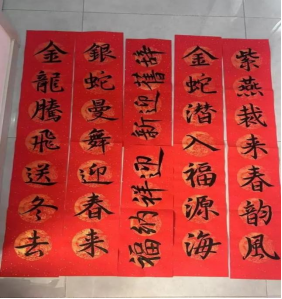 金龍騰飛送冬去
銀蛇曼舞迎春来
辞舊迎新
迎祥納福
金蛇潜入福源海
紫燕裁来春韵風